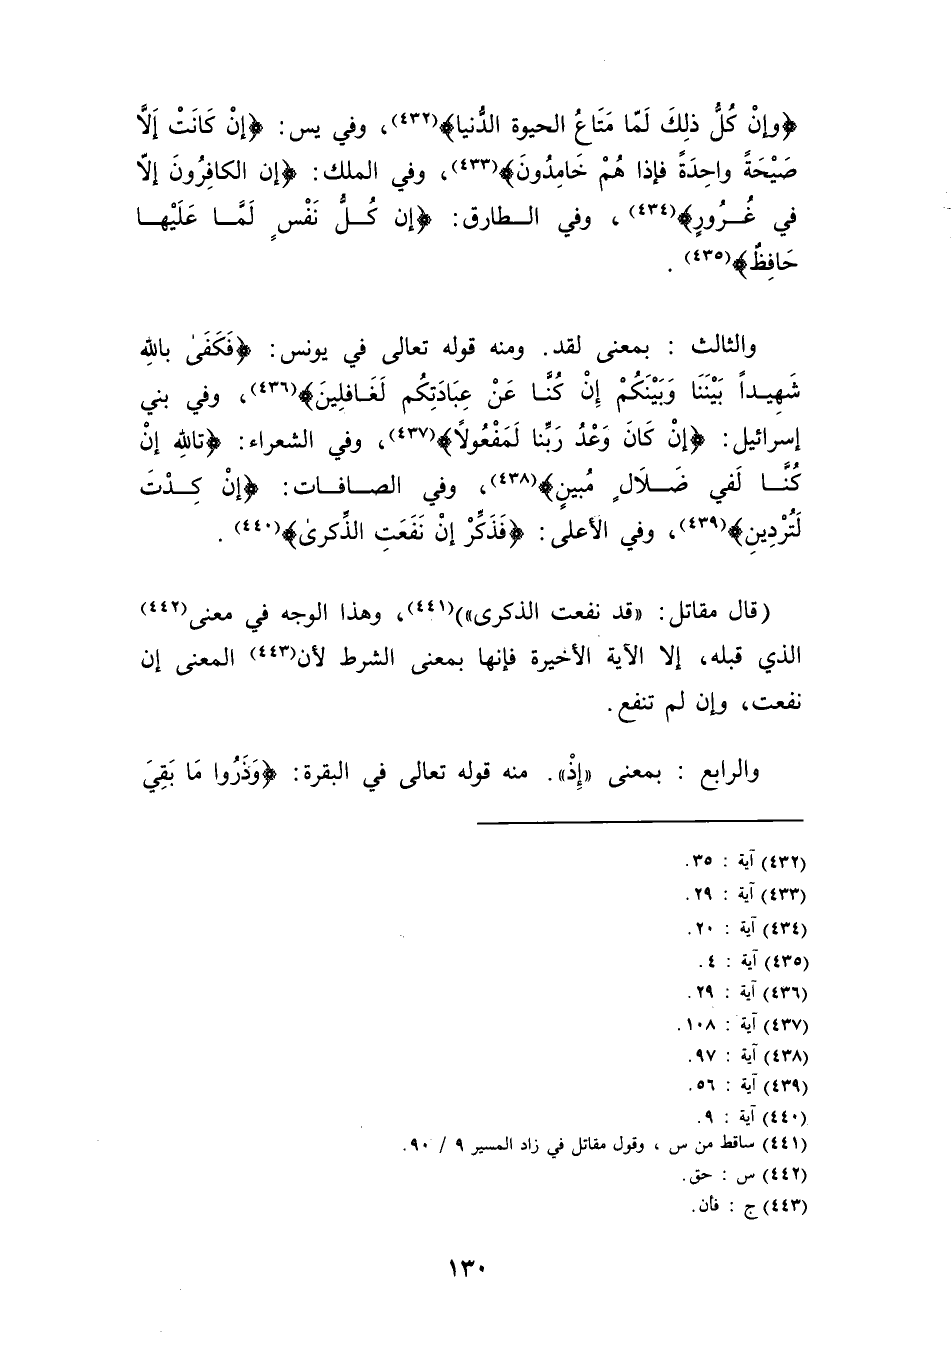 ﴿وإنْ كُلُّ ذلِكَ لَمّا مَتَاعُ الحيوة الدُّنيا﴾(٤٣٢)، وفي يس: ﴿إنْ كَانَتْ إَلَّا
صَيْحَةً واحِدَةً فإذا هُمْ خَامِدُونَ﴾(٤٣٣)، وفي الملك: ﴿إن الكافِرُونَ إلّا
في غُـــرُورٍ﴾(٤٣٤) ، وفي الـــطارق: ﴿إن كُـــلُّ نَفْسٍ لَمَّـــا عَلَيْهـــا
حَافِظٌ﴾(٤٣٥) .
والثالث : بمعنى لقد. ومنه قوله تعالى في يونس: ﴿فَكَفَىٰ باللهِ
شَهِيـداً بَيْنَنَا وَبَيْنَكُمْ إِنْ كُنَّـا عَنْ عِبَادَتِكُم لَغَـافلِينَ﴾(٤٣٦)، وفي بني
إسرائيل: ﴿إنْ كَانَ وَعْدُ رَبِّنا لَمَفْعُولًا﴾(٤٣٧)، وفي الشعراء: ﴿تاللهِ إنْ
كُنَّـــا لَفي ضَـــلَالٍ مُبينٍ﴾(٤٣٨)، وفي الصـــافـــات: ﴿إنْ كِـــدْتَ
لَتُرْدِينِ﴾(٤٣٩)، وفي الأعلى: ﴿فَذَكِّرْ إنْ نَفَعَتِ الذِّكرىٰ﴾(٤٤٠) .
(قال مقاتل: «قد نفعت الذكرى»)(٤٤١)، وهذا الوجه في معنى(٤٤٢)
الذي قبله، إلا الآية الأخيرة فإنها بمعنى الشرط لأن(٤٤٣) المعنى إن
نفعت، وإن لم تنفع.
والرابع : بمعنى «إِذْ». منه قوله تعالى في البقرة: ﴿وَذَرُوا مَا بَقِيَ
(٤٣٢) آية : ٣٥.
(٤٣٣) آية : ٢٩.
(٤٣٤) آية : ٢٠.
(٤٣٥) آية : ٤.
(٤٣٦) آية : ٢٩.
(٤٣٧) آية : ١٠٨.
(٤٣٨) آية : ٩٧.
(٤٣٩) آية : ٥٦.
(٤٤٠) آية : ٩.
(٤٤١) ساقط من س ، وقول مقاتل في زاد المسير ٩ / ٩٠.
(٤٤٢) س : حق.
(٤٤٣) ج : فأن.
١٣٠